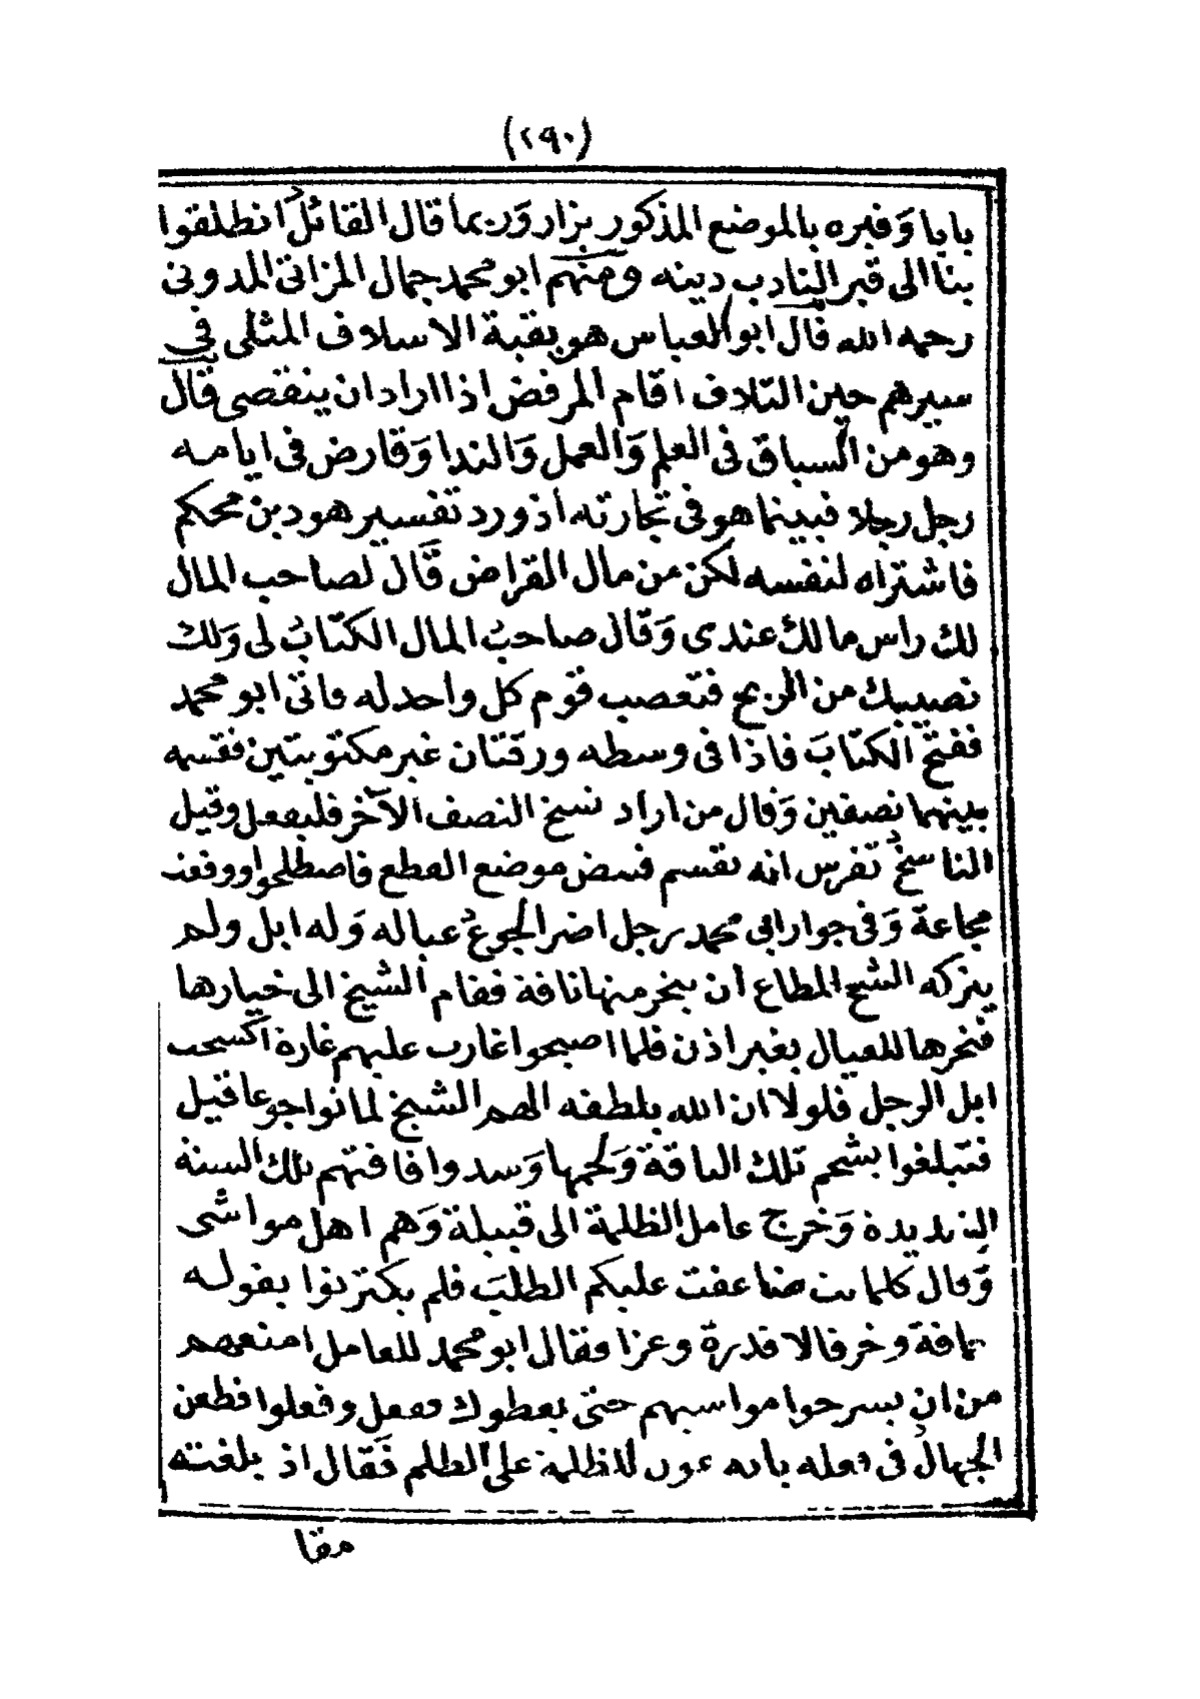 (٢٩٠)
بابا وَقبره بالموضع المذكور يزار وَربما قال القائل انطلقوا
بنا الى قبر النادب دينه ومنهم ابو محمد جمال المزاتى المدونى
رحمه الله قال ابو العباس هو بقية الاسلاف المثلى في
سيرهم حين التلاف اقام المرفض اذا اراد ان ينقضى قال
وهو من السباق فى العلم وَالعمل وَالندا وَقارض فى ايامه
رجل رجلا فبينما هو فى تجارته اذ ورد تفسير هود بن محكم
فاشتراه لنفسه لكن من مال القراض قَال لصاحب المال
لك راس مالك عندى وَقال صاحبُ المال الكتابُ لى وَلك
نصيبك من الربح فتعصب قوم كل واحد له فاتى ابو محمد
ففتح الكتابَ فاذا فى وسطه ورقتان غير مكتوبتين فقسمه
بينهما نصفين وَقال من اراد نسخ النصف الآخر فليفعل وقيل
الناسخُ تفرس انه يقسم فبيض موضع القطع فاصطلحوا ووقعت
مجاعة وَفى جوار ابى محمد رجل اضر الجوعُ عياله وَله ابل ولم
يتركه الشح المطاع ان ينحر منها ناقة فقام الشيخ الى خيارها
فنحرها للعيال بغير اذن فلما اصبحوا غارت عليهم غارة اكسحت
ابل الرجل فلولا ان الله بلطفه الهم الشيخ لماتوا جوعا قيل
فتبلغوا بشحم تلك الناقة وَلحمها وَسدوا فاقتهم تلك السنة
الشديدة وَخرج عامل الظلمة الى قبيلة وَهم اهل مواشى
وَقال كلما بت ضاعفت عليكم الطلبَ فلم يكترثوا بقوله
مخافة وخرفا لا قدرة وعزا فقال ابو محمد للعامل امنعهم
من ان يسرحوا مواشيهم حتى يعطوك ففعل وفعلوا فطعن
الجهال فى فعله بانه عون للظلمة على الظلم فَقال اذ بلغته
مقا